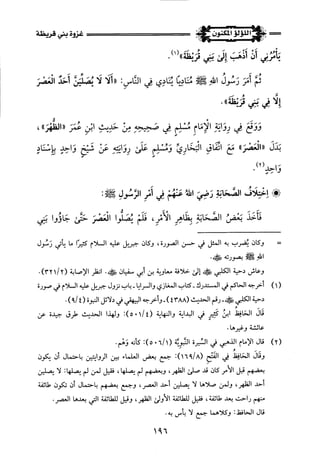 اللؤلؤ المكنون
غزوة بني قريظة
يَأْمُرُنِي أَنْ أَذْهَبَ إِلَى بَنِي قُرَيْظَةَ»(١).
ثُمَّ أَمَرَ رَسُولُ اللهِ ﷺ مُنَادِيًا يُنَادِي فِي النَّاسِ: «أَلَا لَا يُصَلِّيَنَّ أَحَدٌ الْعَصْرَ
إِلَّا فِي بَنِي قُرَيْظَةَ».
وَوَقَعَ فِي رِوَايَةِ الْإِمَامِ مُسْلِمٍ فِي صَحِيحِهِ مِنْ حَدِيثِ ابْنِ عُمَرَ «الظُّهْرَ»،
بَدَلَ «الْعَصْرَ» مَعَ اتِّفَاقِ الْبُخَارِيِّ وَمُسْلِمٍ عَلَى رِوَايَتِهِ عَنْ شَيْخٍ وَاحِدٍ بِإِسْنَادٍ
وَاحِدٍ(٢).
اخْتِلَافُ الصَّحَابَةِ رَضِيَ اللهُ عَنْهُمْ فِي أَمْرِ الرَّسُولِ ﷺ:
فَأَخَذَ بَعْضُ الصَّحَابَةِ بِظَاهِرِ الْأَمْرِ، فَلَمْ يُصَلُّوا الْعَصْرَ حَتَّى جَاؤُوا بَنِي
= وكان يُضرب به المثل في حسن الصورة، وكان جبريل عليه السلام كثيرًا ما يأتي رسول
الله ﷺ بصورته
وعاش دحية الكلبي إلى خلافة معاوية بن أبي سفيان. انظر الإصابة (٣٢١/٢).
(١) أخرجه الحاكم في المستدرك ـ كتاب المغازي والسرايا ـ باب نزول جبريل عليه السلام في صورة
دحية الكلبي ـ رقم الحديث (٤٣٨٨) ـ وأخرجه البيهقي في دلائل النبوة (٩/٤)
قال الحافظ ابن كثير في البداية والنهاية (٥٠١/٤): ولهذا الحديث طرق جيدة عن
عائشة وغيرها.
(٢) قال الإمام الذهبي في السيرة النبوية (٥٠٦/١): كأنه وَهْم.
وقال الحافظ في الفتح (١٦٩/٨): جمع بعض العلماء بين الروايتين باحتمال أن يكون
بعضهم قبل الأمر كان قد صلى الظهر، وبعضهم لم يصلها، فقيل لمن لم يصلها: لا يصلين
أحد الظهر، ولمن صلاها لا يصلين أحد العصر، وجمع بعضهم باحتمال أن تكون طائفة
منهم راحت بعد طائفة، فقيل للطائفة الأولى الظهر، وقيل للطائفة التي بعدها العصر.
قال الحافظ: وكلاهما جمع لا بأس به.
١٩٦